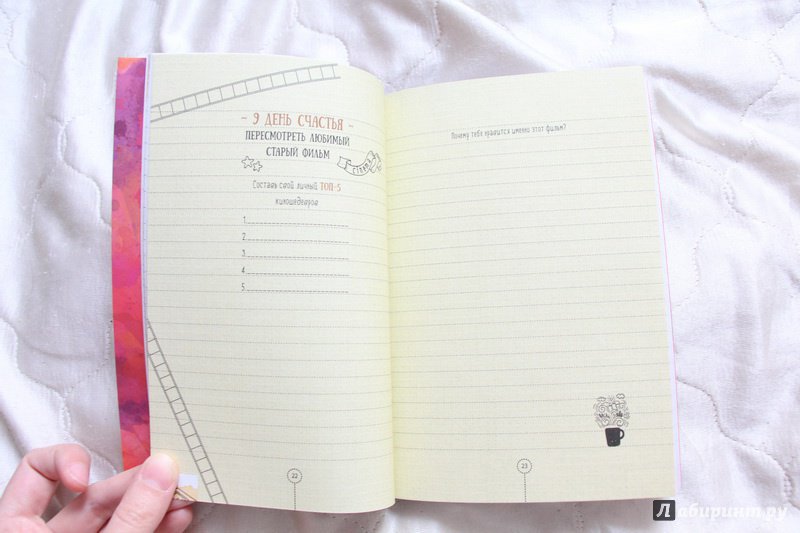 ~ 9 ДЕНЬ СЧАСТЬЯ ~
ПЕРЕСМОТРЕТЬ ЛЮБИМЫЙ
СТАРЫЙ ФИЛЬМ
cinema
Составь свой личный ТОП-5
киношедевров
1
2
3
4
5
22
Почему тебе нравится именно этот фильм?
23
Лабиринт.ру